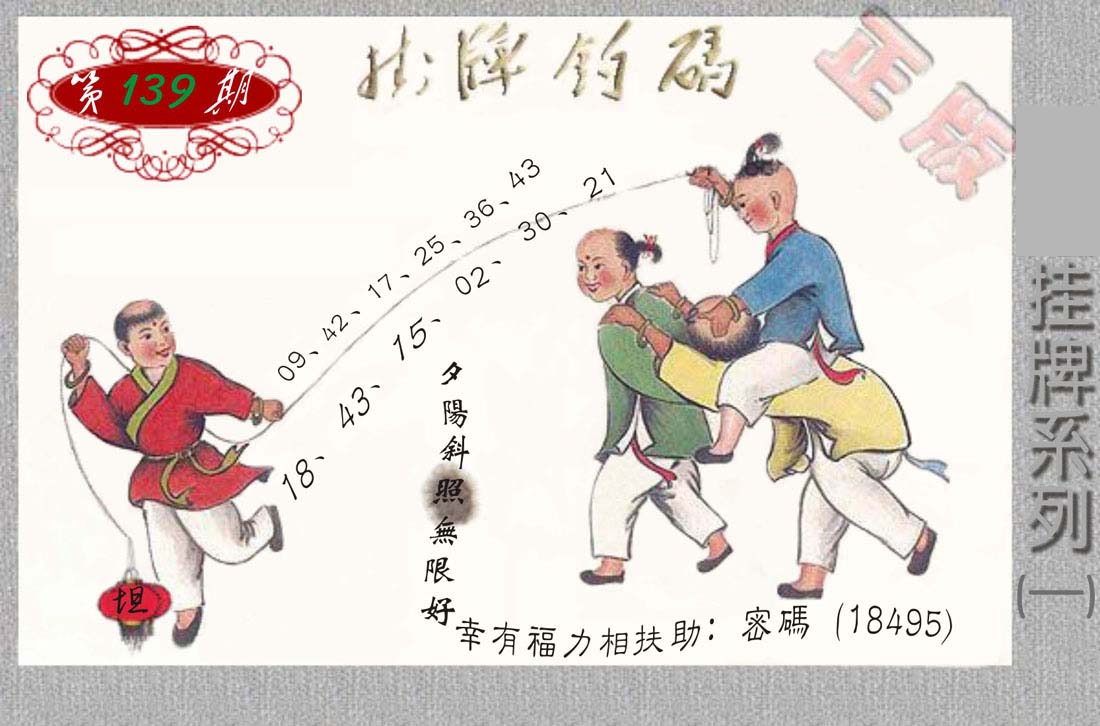 第 139 期
掛牌釣碼
正版
09、42、17、25、36、43
18、43、15、02、30、21
夕陽斜照無限好
坦
幸有福力相扶助：密碼 (18495)
挂牌系列(一)